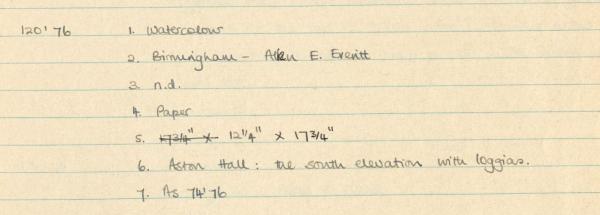 120'76 1. Watercolour
2. Birmingham - Allen E. Everitt
3. n.d.
4. Paper
5. 17 3/4" x 12 1/4" x 17 3/4"
6. Aston Hall: the south elevation with loggias.
7. As 74'76